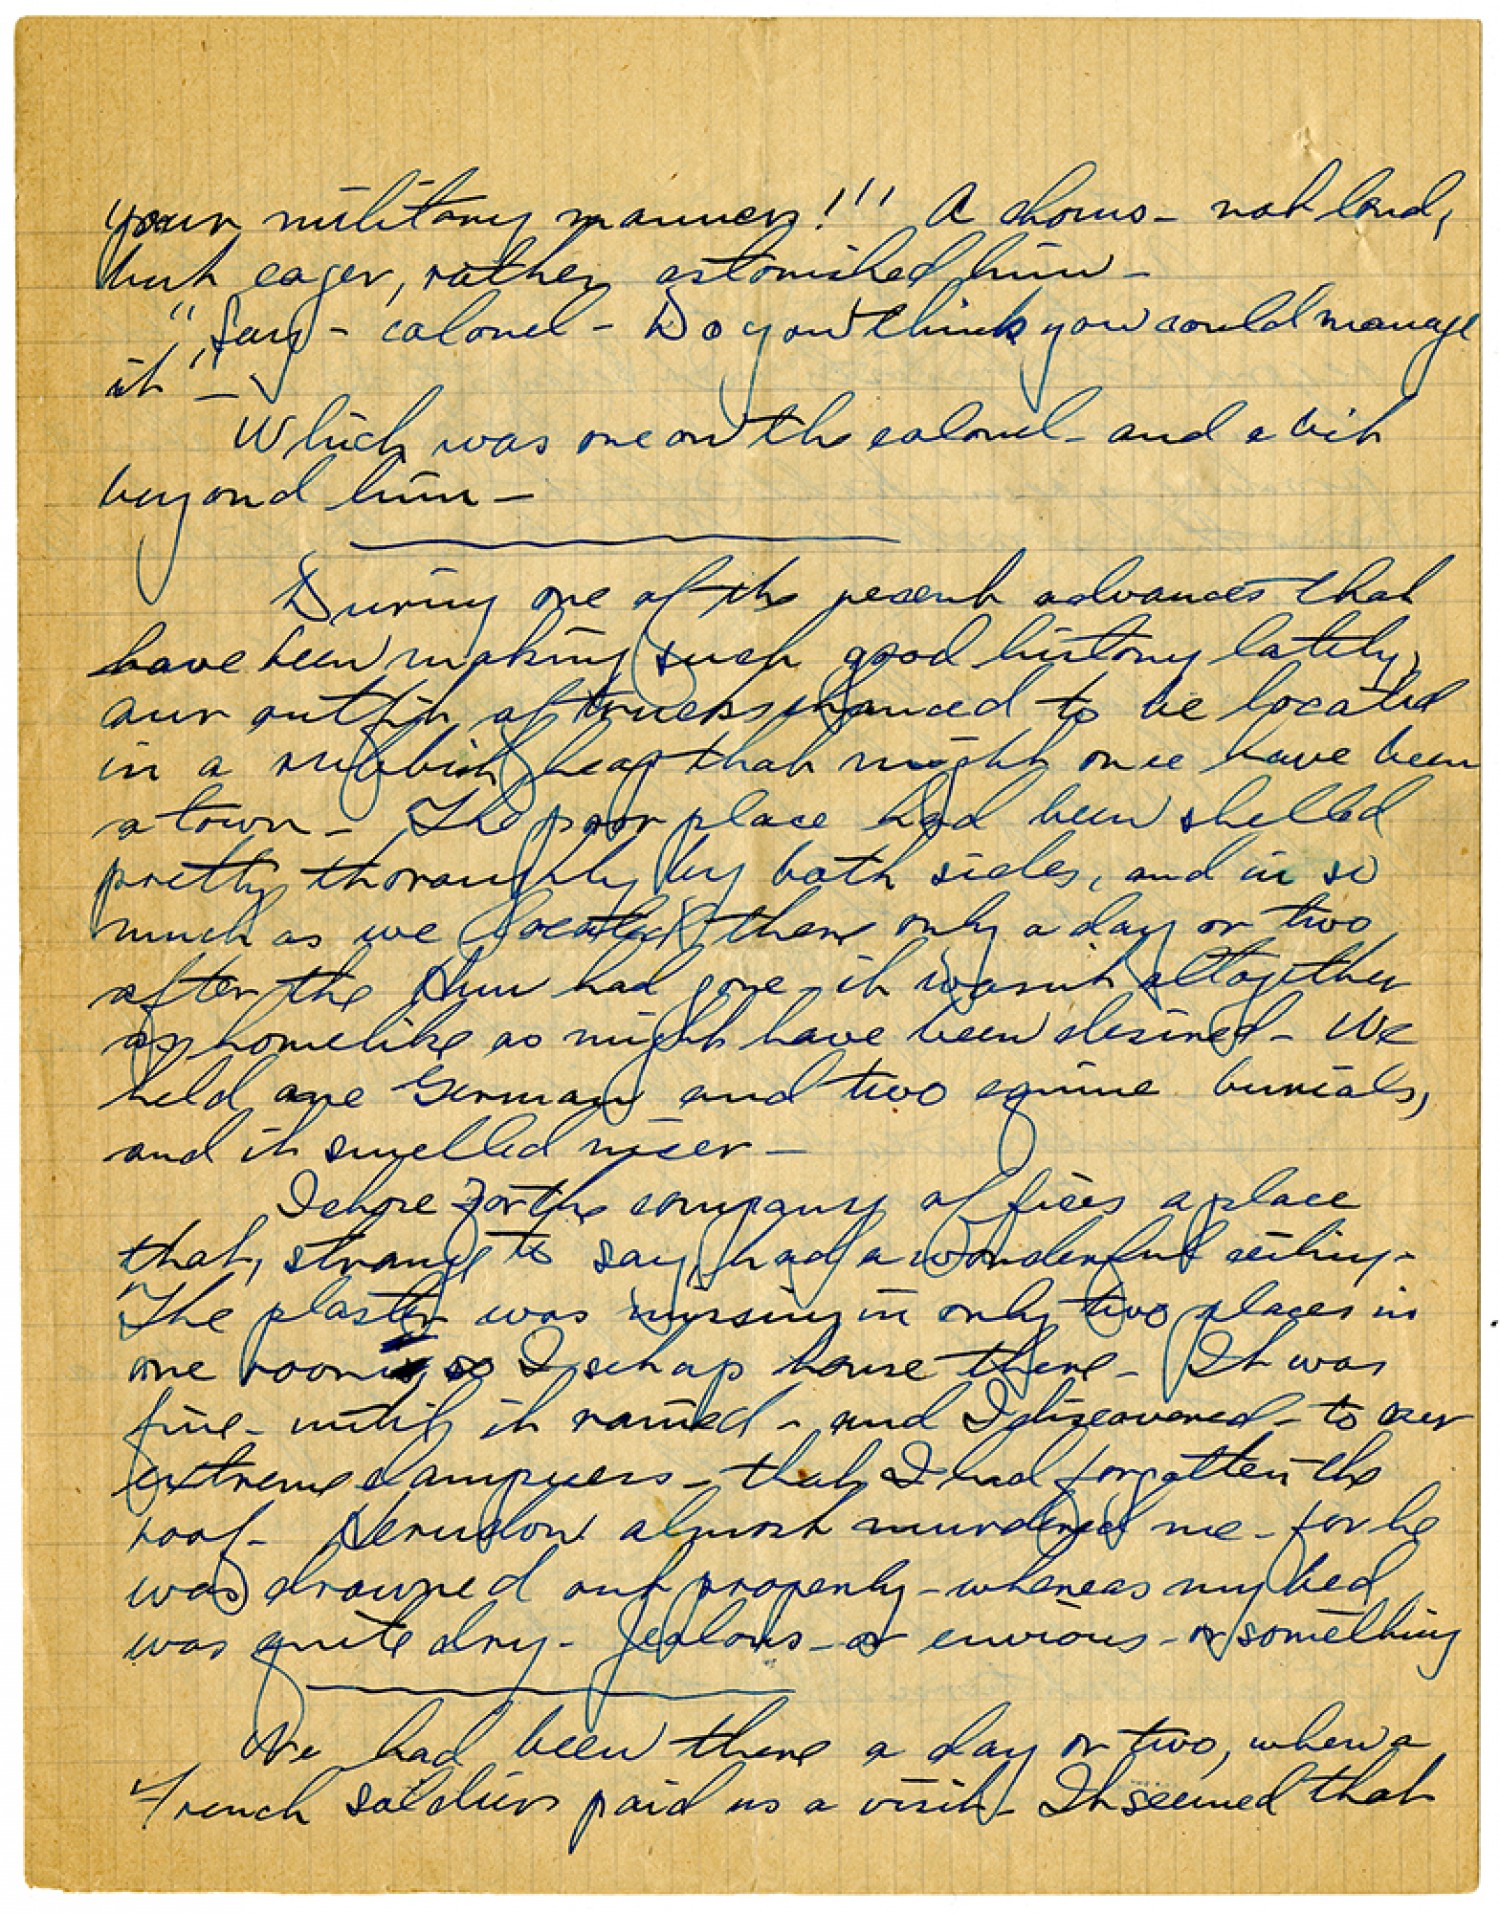 your military manners!!! A chorus - not loud,
but eager, rather astonished him -
"Say - colonel - Do you think you could manage
it" -
Which was one on the colonel - and a bit
beyond him -
During one of the recent advances that
have been making such good history lately,
our outfit of trucks chanced to be located
in a rubbish heap that might once have been
a town - The poor place had been shelled
pretty thoroughly by both sides, and in so
much as we located there only a day or two
after the Hun had gone - it wasn't altogether
as homelike as might have been desired - We
held one German and two equine burials,
and it smelled nicer -
I chose for the company offices a place
that, strange to say, had a wonderful ceiling -
The plaster was missing in only two places in
one room, so I set up house there - It was
fine - until it rained - and I discovered - to our
extreme dampness - that I had forgotten the
roof - almost murdered me - for he
was drowned out properly - whereas my bed
was quite dry - Jealous - or envious - or something
We had been there a day or two, when a
French soldier paid us a visit - It seemed that